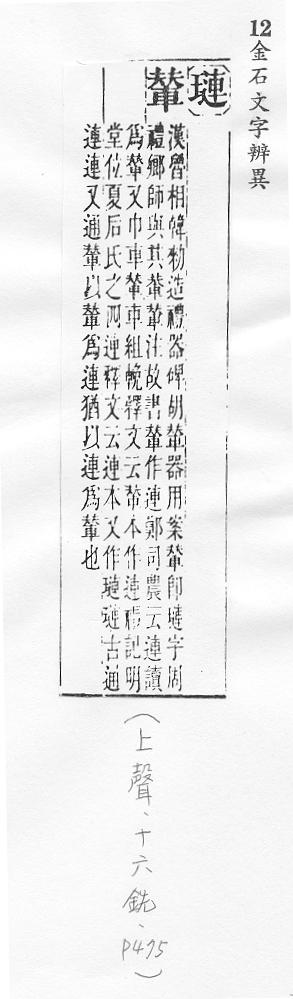 12金石文字辨異
璉
輦
漢魯相韓勑造禮器碑胡輦器用案輦卽璉字周
禮鄉師與其輂輦注故書輦作連鄭司農云連讀
爲輦又巾車輦車組輓釋文云輦本作連禮記明
堂位夏后氏之四連釋文云連本又作璉璉古通
連連又通輦以輦爲連猶以連爲輦也
(上聲、十六銑、P475)